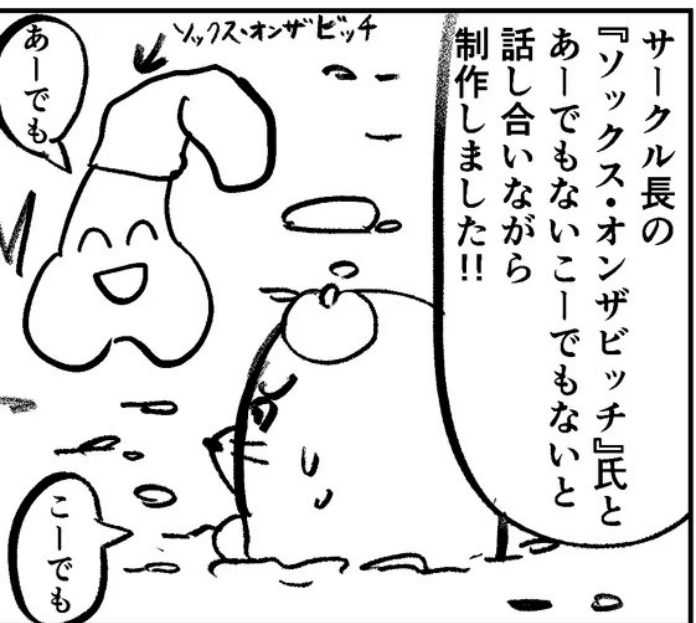 サークル長の
『ソックス・オンザビッチ』氏と
あーでもないこーでもないと
話し合いながら
制作しました!!
ソックス・オンザビッチ
あーでも
こーでも